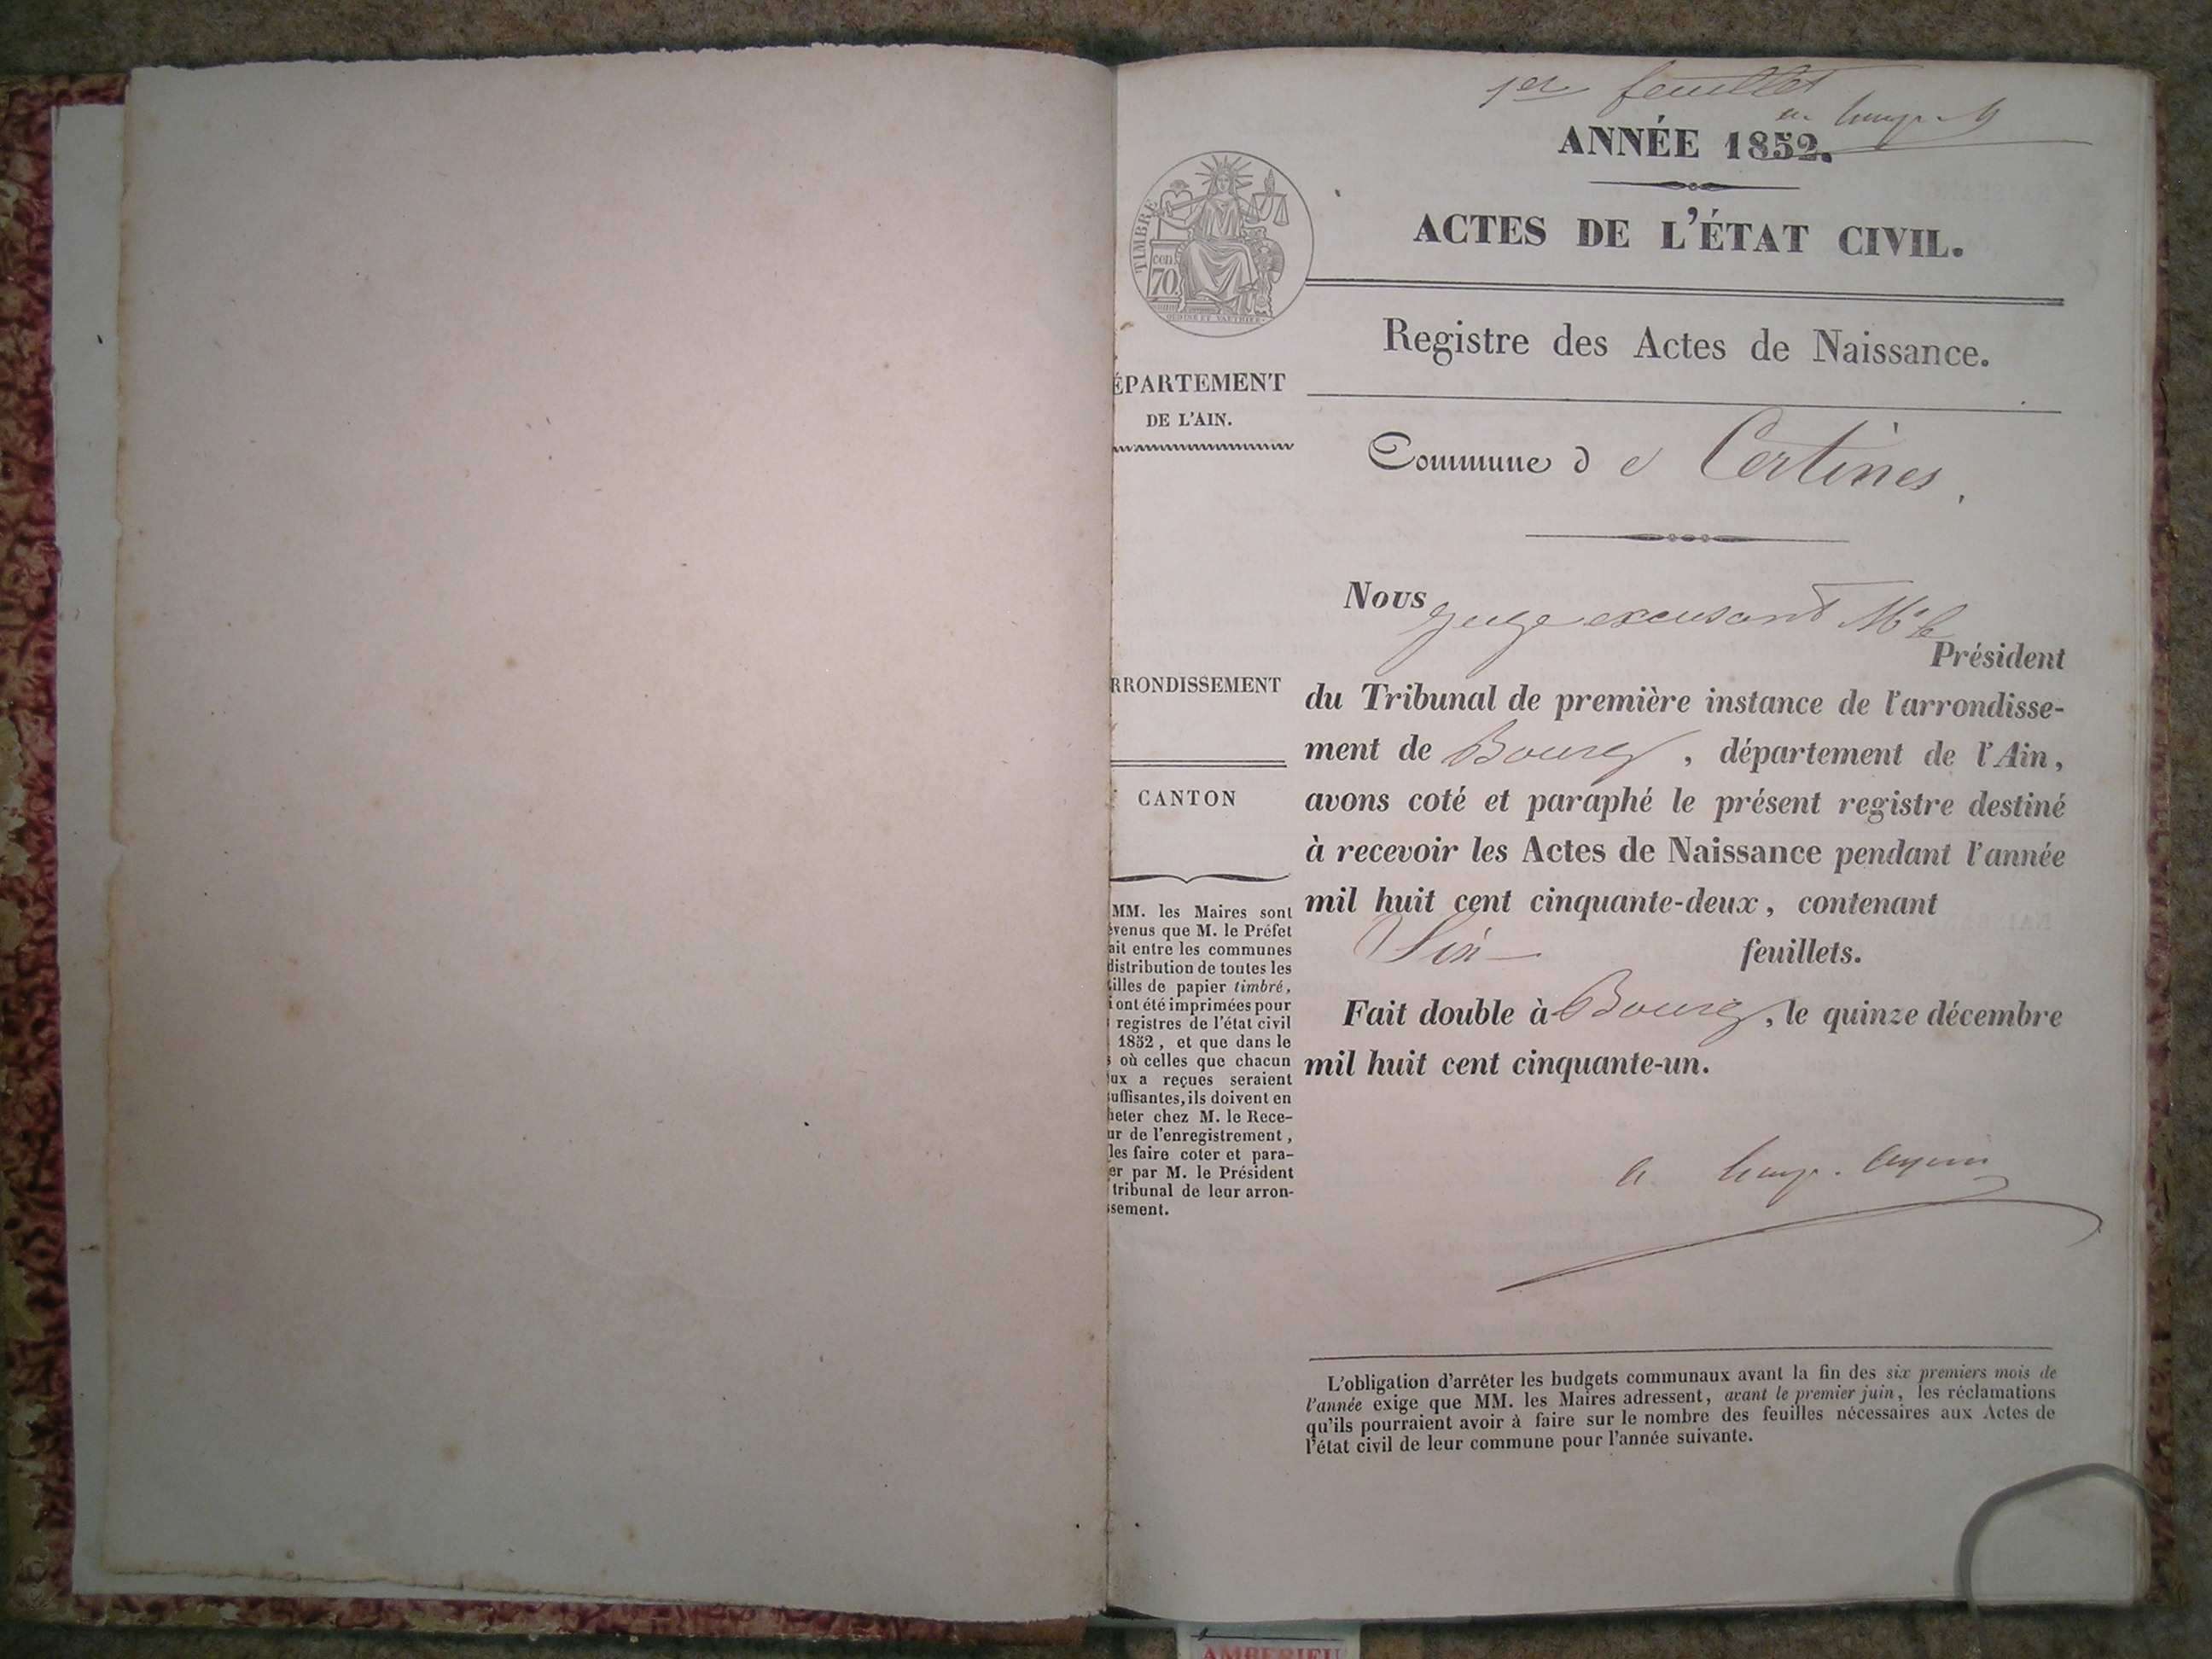 1er feuillet
ANNÉE 1852.
ACTES DE L'ÉTAT CIVIL.
TIMBRE
cen.
70
Registre des Actes de Naissance.
ÉPARTEMENT
DE L'AIN.
Commune de Certines.
Nous juge excusant Mr le
Président
du Tribunal de première instance de l'arrondisse-
ment de Bourg, département de l'Ain,
avons coté et paraphé le présent registre destiné
à recevoir les Actes de Naissance pendant l'année
mil huit cent cinquante-deux, contenant
Six feuillets.
Fait double à Bourg, le quinze décembre
mil huit cent cinquante-un.
RRONDISSEMENT
CANTON
MM. les Maires sont
venus que M. le Préfet
ait entre les communes
distribution de toutes les
illes de papier timbré,
i ont été imprimées pour
registres de l'état civil
1852, et que dans le
s où celles que chacun
ux a reçues seraient
uffisantes, ils doivent en
heter chez M. le Rece-
ur de l'enregistrement,
les faire coter et para-
er par M. le Président
tribunal de leur arron-
sement.
L'obligation d'arrêter les budgets communaux avant la fin des six premiers mois de
l'année exige que MM. les Maires adressent, avant le premier juin, les réclamations
qu'ils pourraient avoir à faire sur le nombre des feuilles nécessaires aux Actes de
l'état civil de leur commune pour l'année suivante.
AMBERIEU